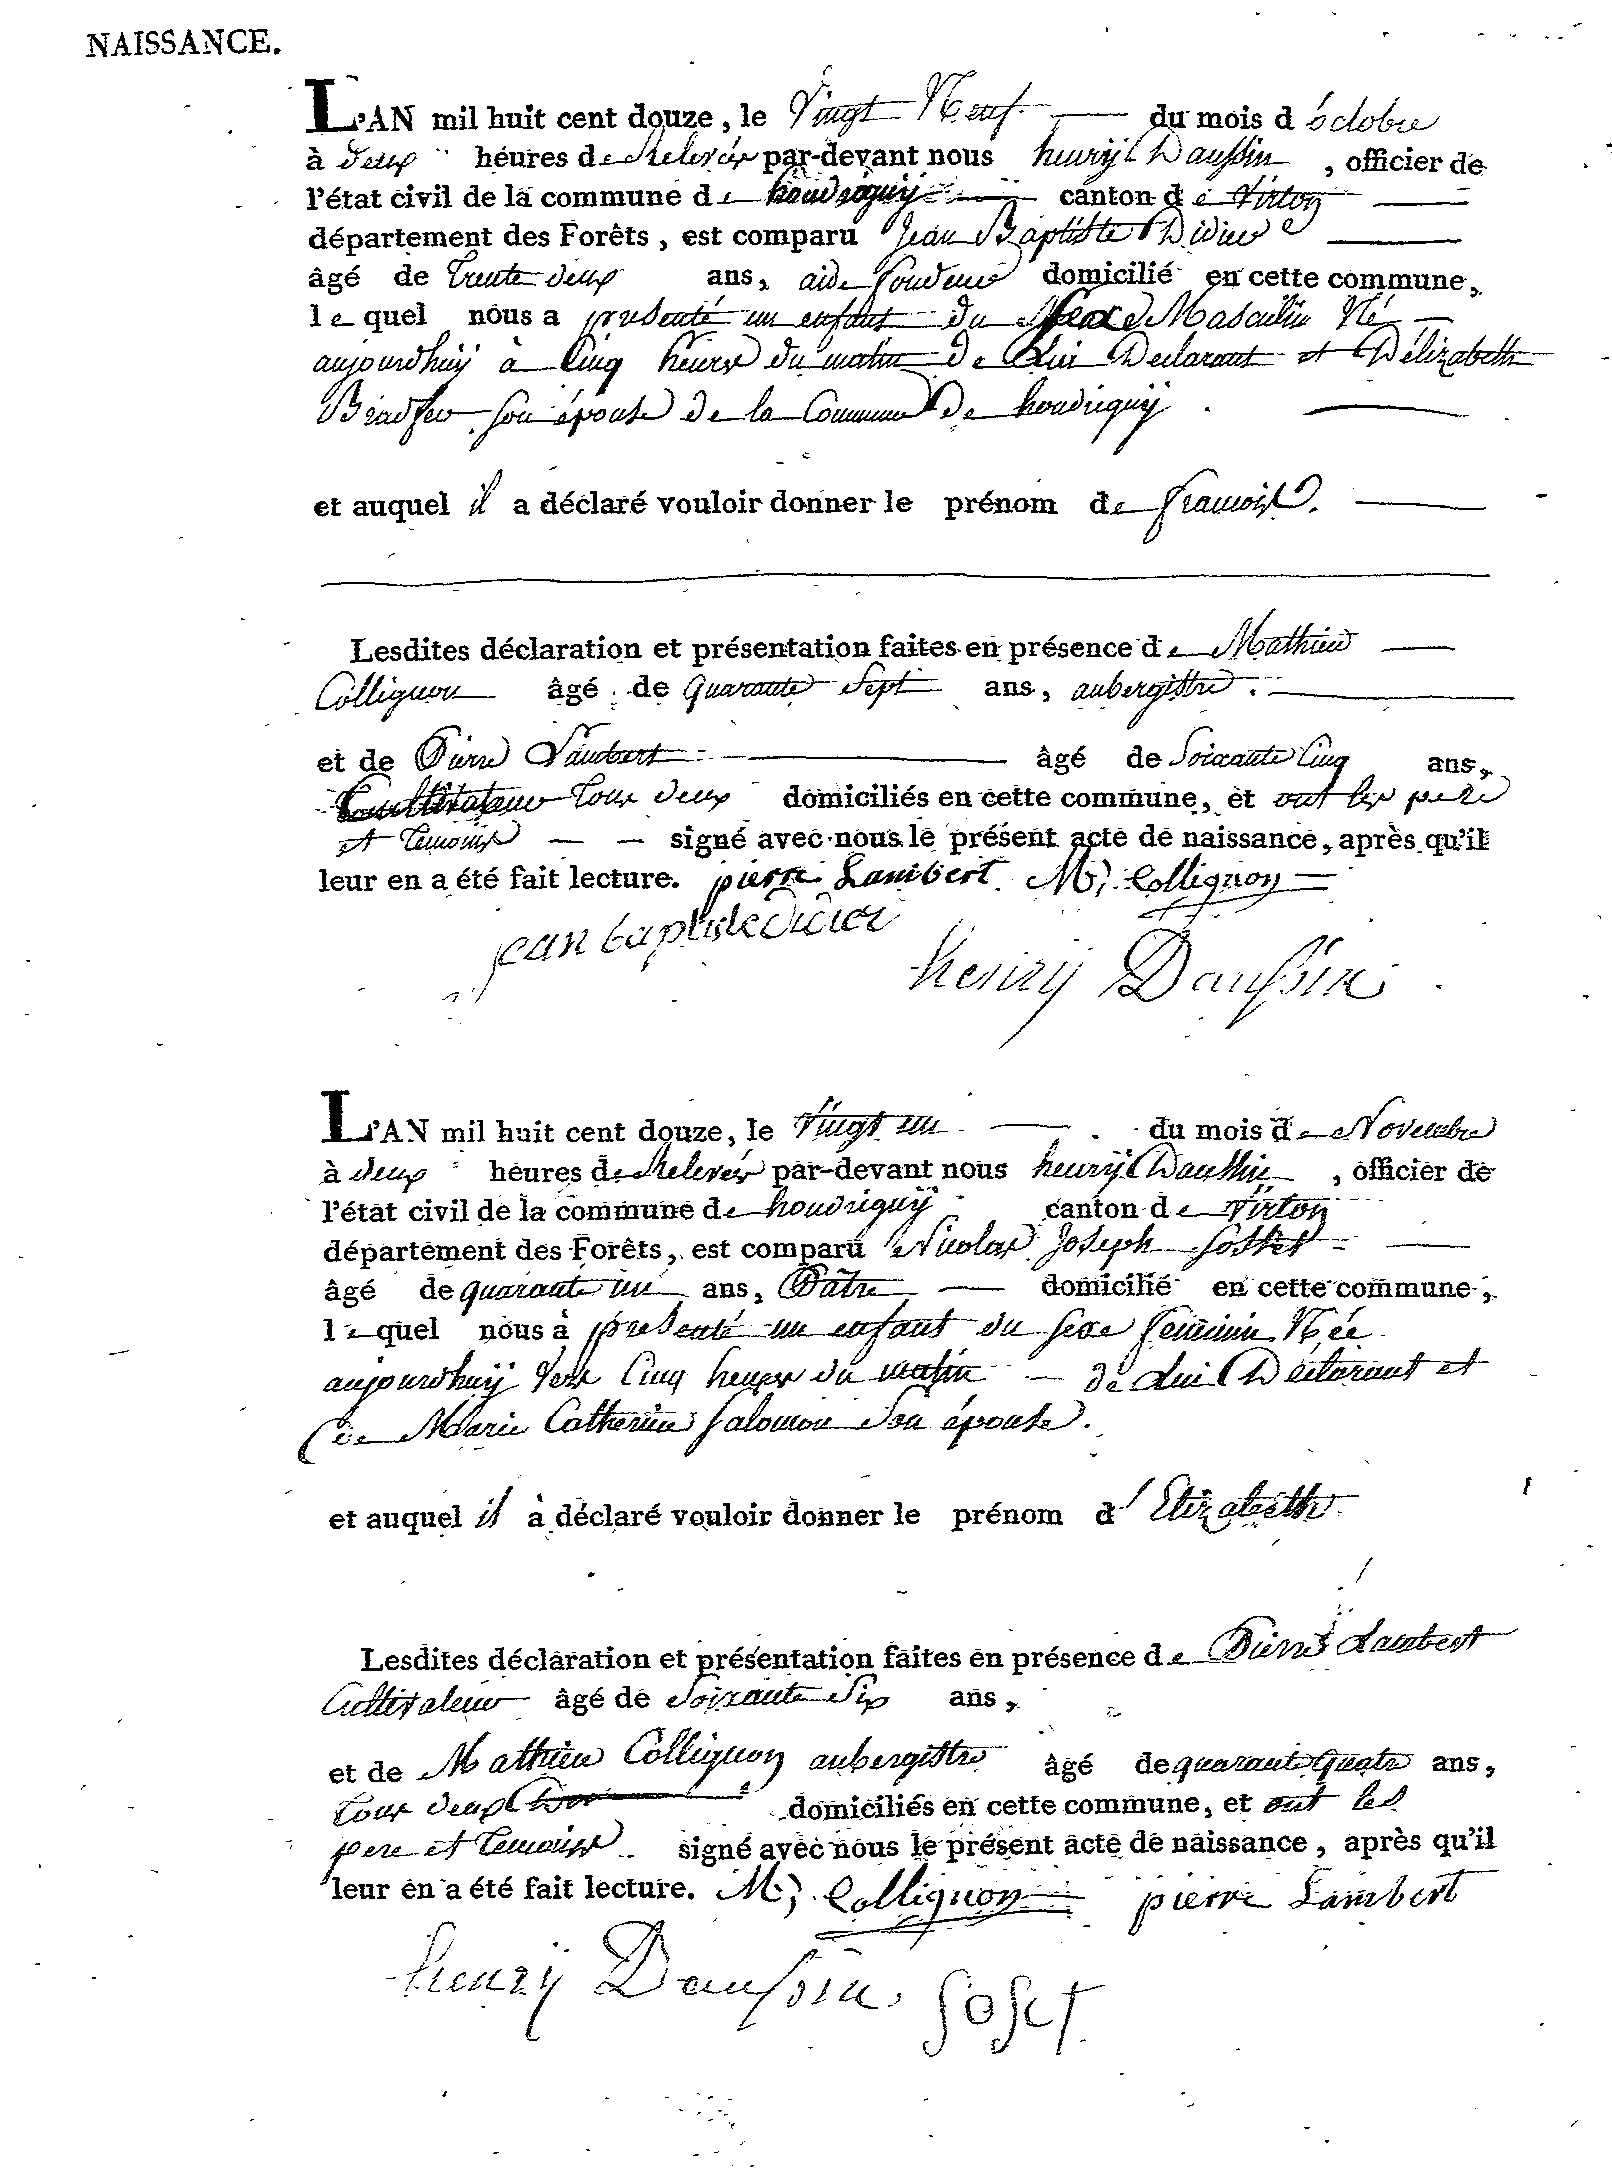 NAISSANCE.
L'AN mil huit cent douze, le Vingt Neuf du mois d'octobre
à deux heures de Relevée par-devant nous henrÿ Daussin, officier de
l'état civil de la commune de houdrigny canton de Virton
département des Forêts, est comparu Jean Baptiste Didier
âgé de trente deux ans, aide fondeur domicilié en cette commune,
lequel nous a presenté un enfant du Sexe Masculin Né
aujourdhuÿ à Cinq heures du matin de Lui Declarant et D'élizabeth
son épouse de la Commune de houdrignÿ.
et auquel il a déclaré vouloir donner le prénom de françois.
Lesdites déclaration et présentation faites en présence de Mathieu
Collignon âgé de quarante Sept ans, aubergiste.
et de Pierre Lambert âgé de Soixante Cinq ans,
Cultivateur tous deux domiciliés en cette commune, et ont les pere
et temoins signé avec nous le présent acte de naissance, après qu'il
leur en a été fait lecture. pierre Lambert M; Collignon
jean baptiste didier
henrÿ Daussin
L'AN mil huit cent douze, le Vingt un du mois de Novembre
à deux heures de Relevée par-devant nous henrÿ Daussin, officier de
l'état civil de la commune de houdrignÿ canton de Virton
département des Forêts, est comparu Nicolas Joseph Sosset
âgé de quarante un ans, Pâtre domicilié en cette commune,
lequel nous à presenté un enfant du sexe feminin Née
aujourdhuÿ vers Cinq heures du matin de Lui Déclarant et
de Marie Catherine Salomon Son épouse.
et auquel il à déclaré vouloir donner le prénom d'Elizabeth
Lesdites déclaration et présentation faites en présence de Pierre Lambert
Cultivateur âgé de Soixante Six ans,
et de Mathieu Collignon aubergiste âgé de quarante quatre ans,
tous deux domiciliés en cette commune, et ont les
pere et temoins signé avec nous le présent acte de naissance, après qu'il
leur en a été fait lecture. M; Collignon pierre Lambert
henrÿ Daussin. Soset